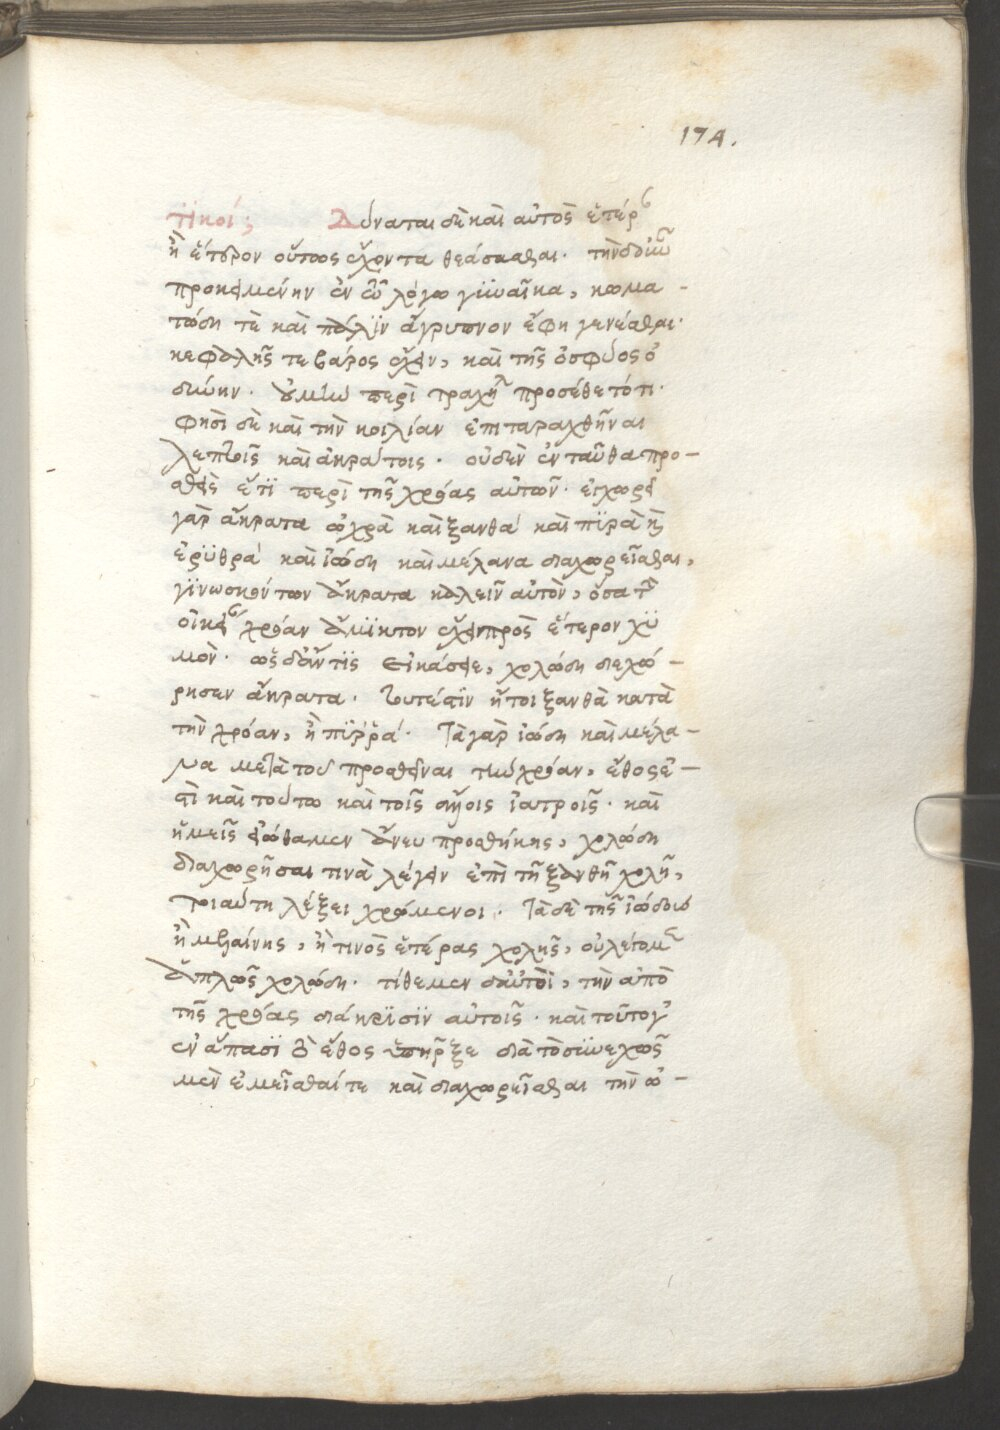 174.
τικοί; Δύναται δὲ καὶ αὐτὸς ἑτέρ
ἢ ἕτερον οὕτως ἔχοντα θεάσασθαι. τὴν
προκειμένην ἐν τῷ λόγω γϋναῖκα, κωμα-
τώδη τὲ καὶ πάλϊν ἄγρυπνον ἔφη γενέσθαι.
κεφαλῆς τε βάρος ἔχειν, καὶ τῆς ὀσφύος ὀ
δύνην. περὶ τραχήλ προσέθετό τι.
φησὶ δὲ καὶ τὴν κοιλίαν ἐπιταραχθῆναι
λεπτοῖς καὶ ἀκράτοις. οὐδὲν ἐνταῦθα προ-
σθεὶς ἔτϊ περὶ τῆς χρόας αὐτῶν. ἐγχωρεῖ
γὰρ ἄκρατα ὠχρὰ καὶ ξανθὰ καὶ πϊρὰ κ
ἐρϋθρὰ καὶ ἰώδη καὶ μέλανα διαχωρεῖσθαι,
γϊνωσκόντων ἄκρατα καλεῖν αὐτὸν, ὅσα τ
οἰκεί χρόαν ἄμϊκτον ἔχει πρὸς ἕτερον χϋ
μόν. ὡς δἄν τϊς εἰκάσειε, χολώδη διεχώ-
ρησεν ἄκρατα. τουτέστϊν ἤτοι ξανθὰ κατὰ
τὴν χρόαν, ἢ πϊῤῥά. Τὰ γὰρ ἰώδη καὶ μέλα-
να μετὰ τοῦ προσθεῖναι τὴν χρόαν, ἔθος ἐ-
στὶ καὶ τούτω καὶ τοῖς ἄλλοις ἰατροῖς. καὶ
ἡμεῖς εἰώθαμεν ἄνευ προσθήκης, χολώδη
διαχωρῆσαι τινὰ λέγειν ἐπὶ τῆ ξανθῆ χολῆ,
τοιαύτη λέξει χρώμενοι. Τὰ δὲ τῆς ἰώδους
ἢ μελαίνης, ἤ τινος ἑτέρας χολῆς, οὐ λέγομ
ἁπλῶς χολώδη. τίθεμεν δ αὐτοὶ, τὴν ἀπὸ
τῆς χρόας διάκρϊσϊν αὐτοῖς. καὶ τοῦτο γ
ἐν ἅπασϊ τὸ ἔθος ὑπῆρξε διὰ τὸ συνεχῶς
μὲν ἐμεῖσθαί τε καὶ διαχωρεῖσθαι τὴν ὠ-